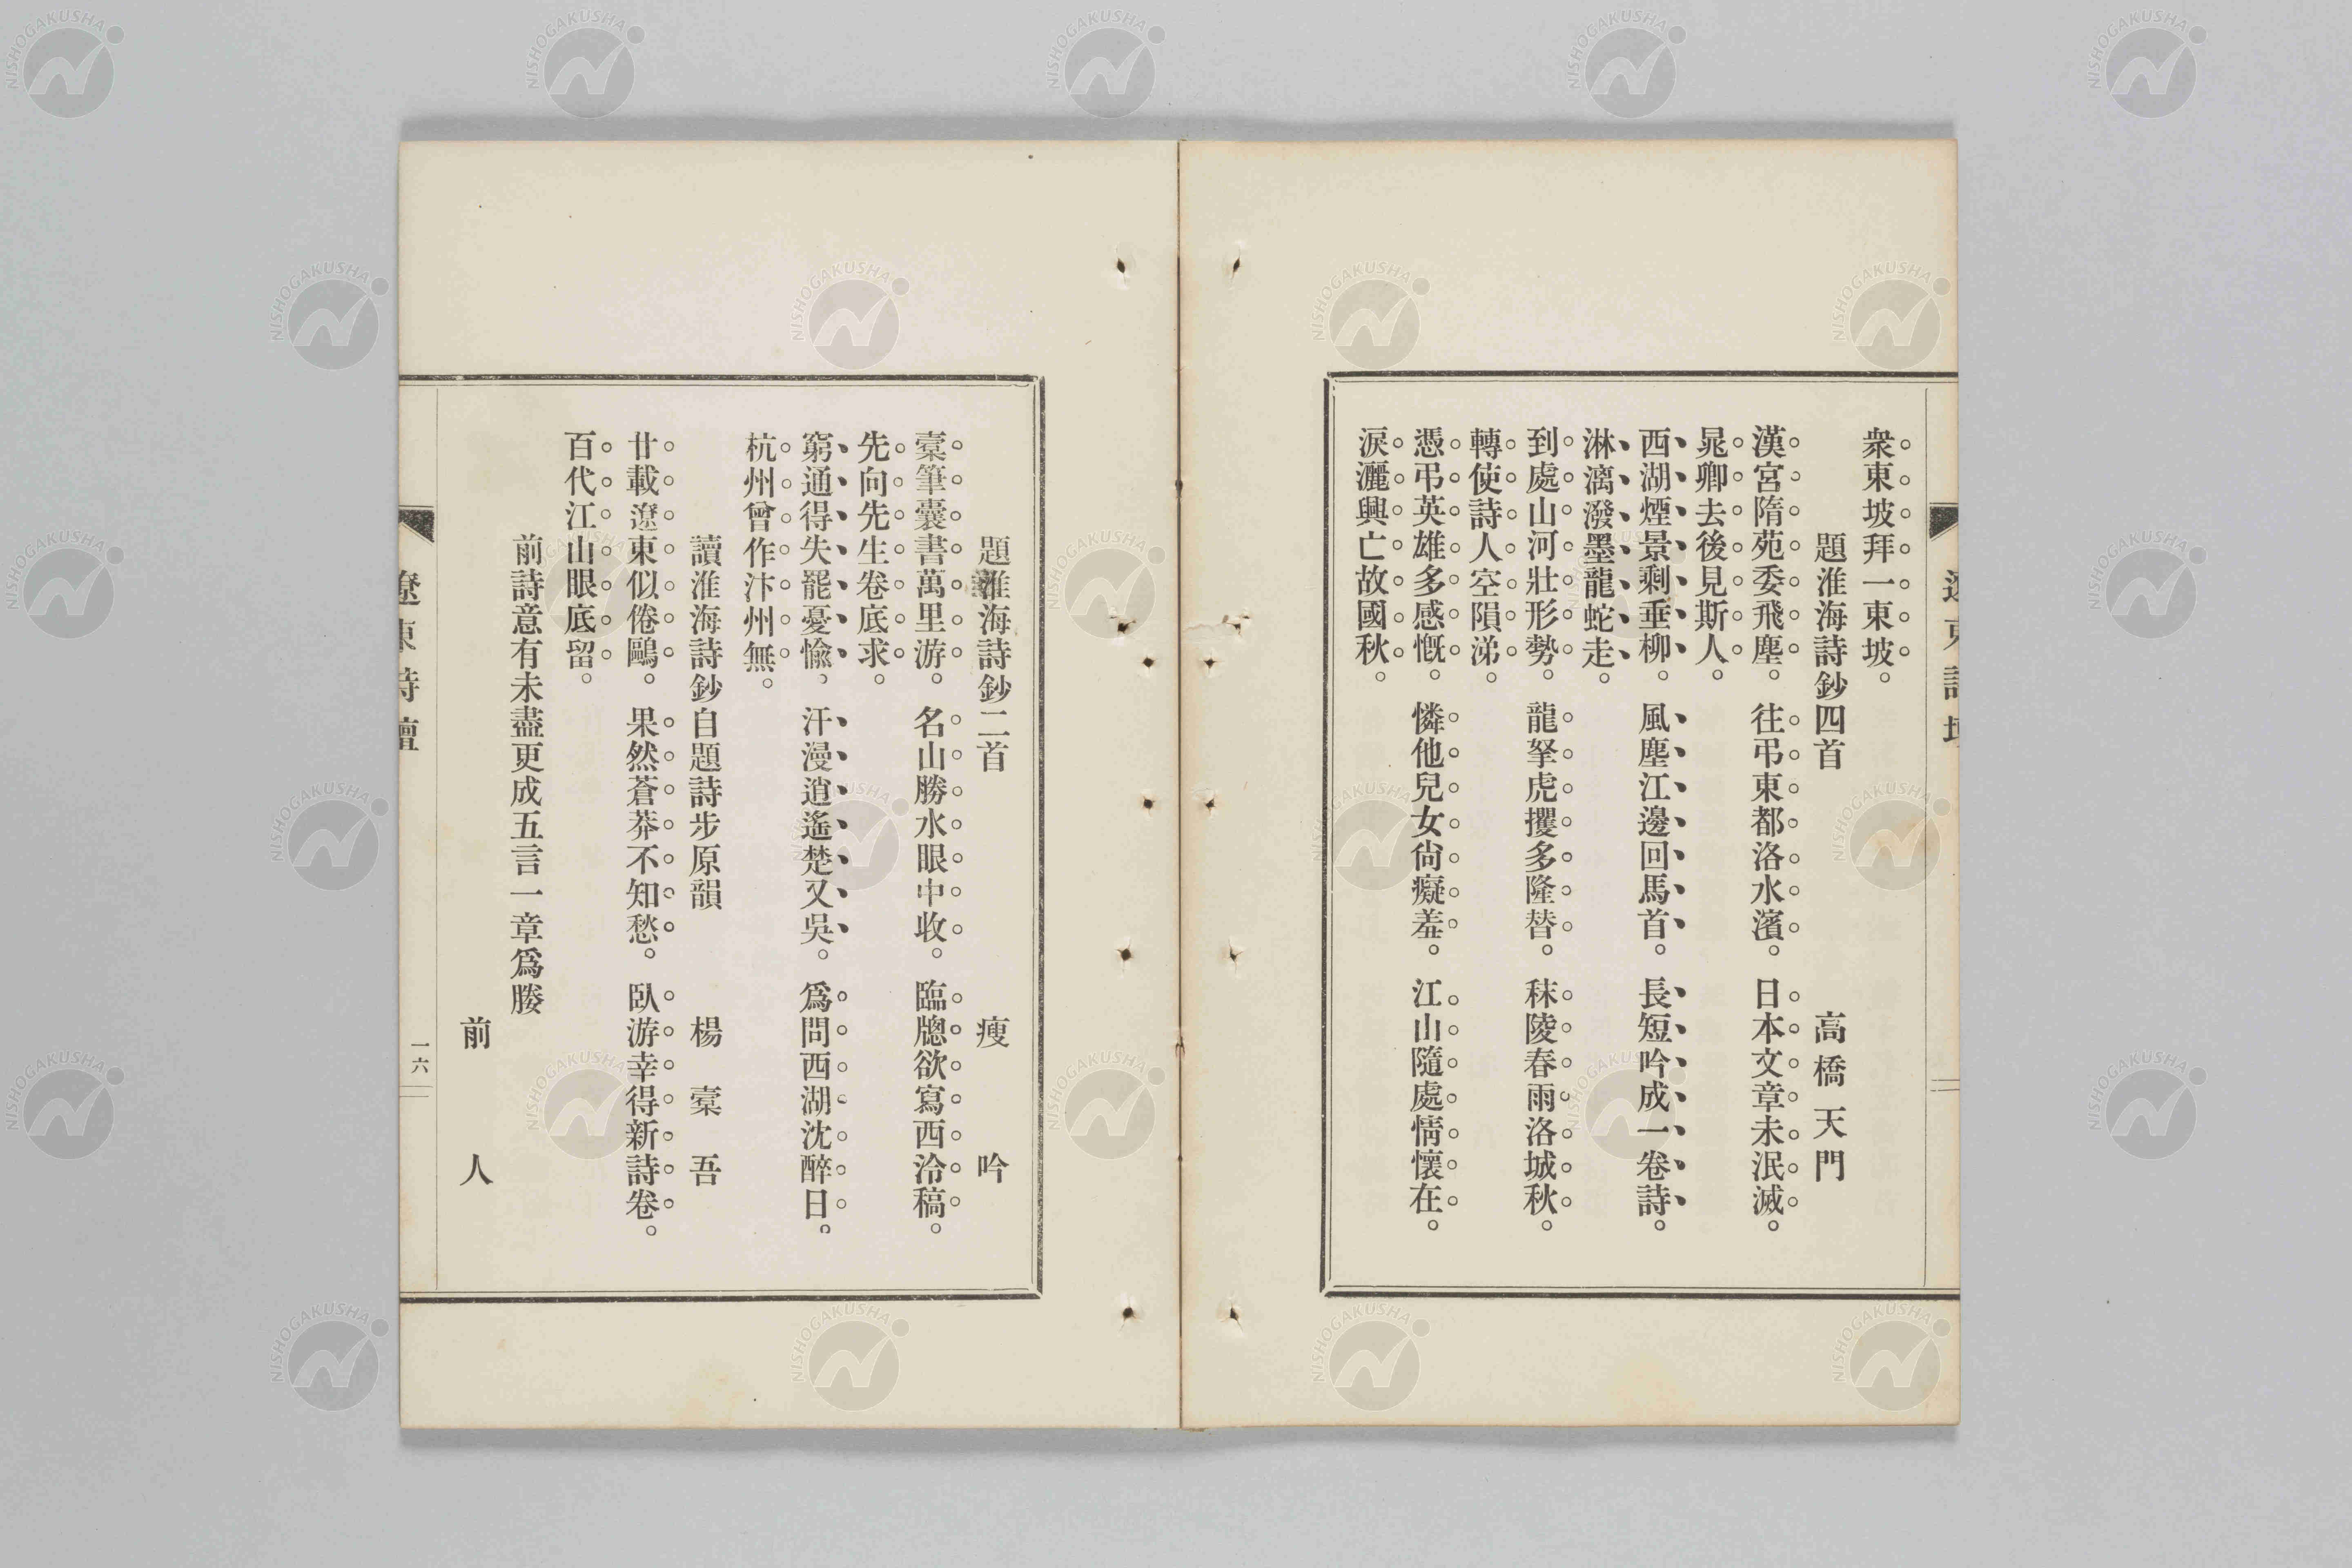 遼東詩壇
衆東坡拜一東坡。
題淮海詩鈔四首　高橋天門
漢宮隋苑委飛塵。往弔東都洛水濱。日本文章未泯滅。
晁卿去後見斯人。
西湖煙景剩垂柳。風塵江邊回馬首。長短吟成一卷詩。
淋漓潑墨龍蛇走。
到處山河壯形勢。龍拏虎攫多隆替。秣陵春雨洛城秋。
轉使詩人空隕涕。
憑弔英雄多感慨。憐他兒女尙癡羞。江山隨處情懷在。
淚灑興亡故國秋。
題淮海詩鈔二首　瘦吟
槖筆囊書萬里游。名山勝水眼中收。臨牕欲寫西泠稿。
先向先生卷底求。
窮通得失罷憂愉。汗漫逍遙楚又吳。爲問西湖沈醉日。
杭州曾作汴州無。
讀淮海詩鈔自題詩步原韻　楊槖吾
廿載遼東似倦鷗。果然蒼莽不知愁。臥游幸得新詩卷。
百代江山眼底留。
前詩意有未盡更成五言一章爲媵
前人
遼東詩壇
一六
NISHOGAKUSHA